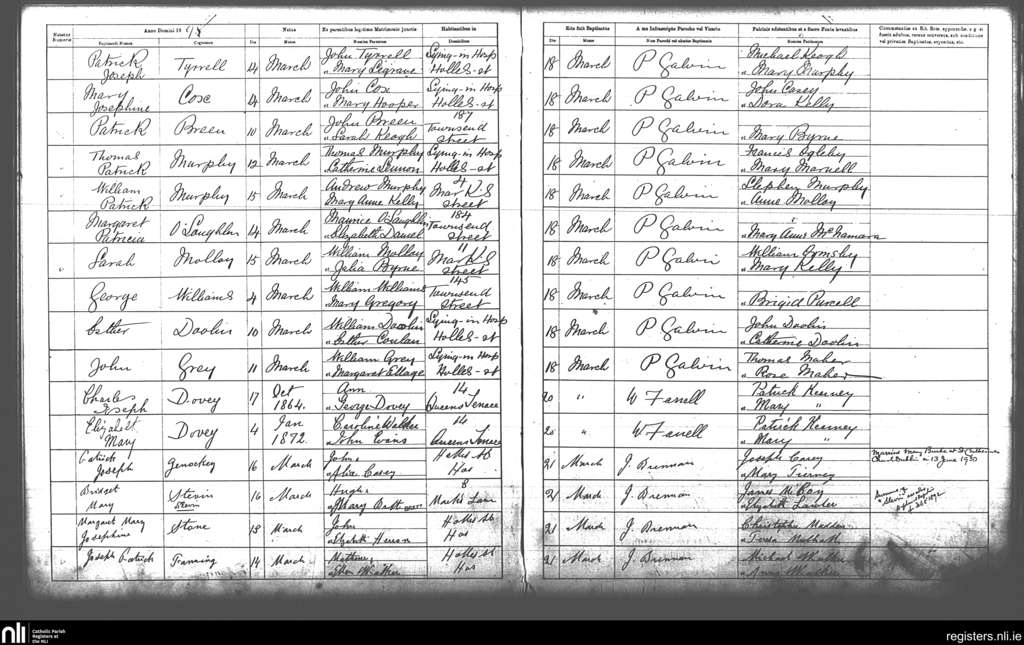 Anno Domini 19
Natus
Ex parentibus legitimo Matrimonio junctis
Habitantibus in
Rite fuit Baptizatus
A me infrascripto Parocho vel Vicario
Patrinis adstantibus et a Sacro Fonte levantibus
Cognomen
Die
Mense
Nomina Parentum
Die
Mense
Patrick Joseph Tyrrell 14 March John Tyrrell Lying-in Hosp 18 March P Galvin Michael Keogh
„ Mary Holles-st „ Mary Murphy
Mary Josephine Cox 14 March John Cox Lying-in Hosp 18 March P Galvin John Casey
„ Mary Hooper Holles-st „ Dora Kelly
Patrick Breen 10 March John Breen 187 Townsend Street 18 March P Galvin
„ Sarah Keogh „ Mary Byrne
Thomas Patrick Murphy 12 March Thomas Murphy Lying-in Hosp 18 March P Galvin Francis Ogleby
Catherine Lennon Holles-st „ Mary
William Patrick Murphy 15 March Andrew Murphy 4 Marks Street 18 March P Galvin Stephen Murphy
Mary Anne Kelly „ Anne Molloy
Margaret Patricia O'Laughlin 14 March Maurice O'Laughlin 184 Townsend Street 18 March P Galvin
„ Elizabeth Daniel „ Mary Anne McNamara
Sarah Molloy 15 March William Molloy 11 Marks Street 18 March P Galvin William
„ Julia Byrne „ Mary Kelly
George Williams 4 March William Williams 145 Townsend Street 18 March P Galvin
Mary Gregory „ Brigid Purcell
Esther Doolin 10 March William Doolin Lying-in Hosp 18 March P Galvin John Doolin
„ Esther Conlan Holles-st „ Catherine Doolin
John Grey 11 March William Grey Lying-in Hosp 18 March P Galvin Thomas Maher
„ Margaret Holles-st „ Rose Maher
Charles Joseph Dovey 17 Oct 1864. Ann 14 20 „ W Farrell Patrick Kearney
„ George Dovey Queens Terrace „ Mary „
Elizabeth Mary Dovey 4 Jan 1872. Caroline Walker 14 20 „ W Farrell Patrick Kearney
„ John Evans Queens Terrace „ Mary „
Patrick Joseph Genockey 16 March John Holles St 21 March J. Brennan Joseph Casey Married Mary Burke at St
„ Alice Casey Hos „ Mary Tierney 13 June 1930
Bridget Mary 16 March Hugh 8 21 March J. Brennan James
„ Mary Marks Lane „ Elizabeth Lawler
Margaret Mary Josephine Stone 13 March John Holles St 21 March J. Brennan Christopher Madden
„ Elizabeth Hos „ Teresa
Joseph Patrick 14 March Holles St 21 March J. Brennan Michael
Hos „ Anne
nli
Catholic Parish
Registers at
the NLI
registers.nli.ie